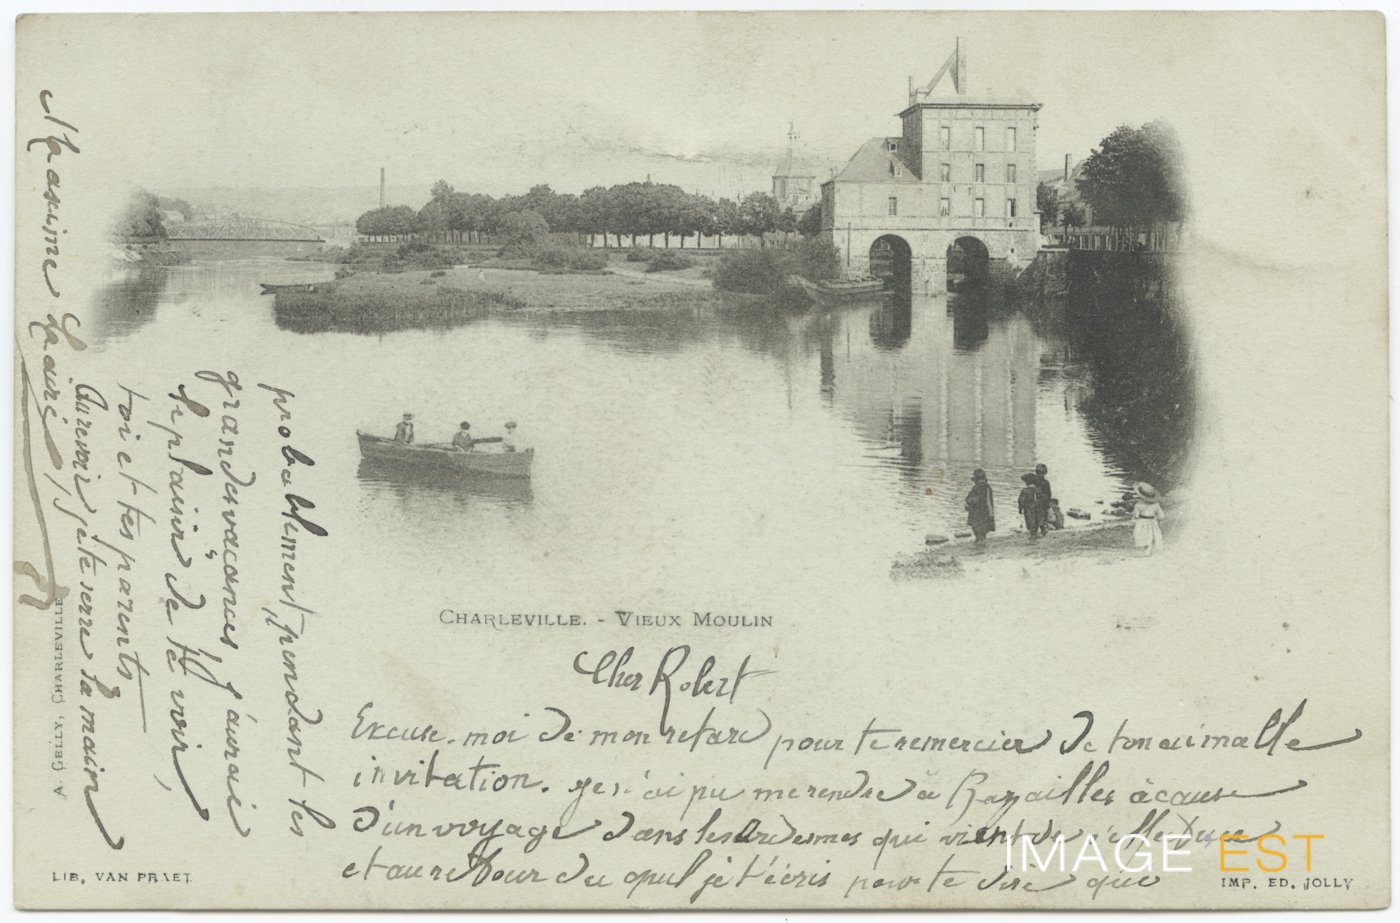 CHARLEVILLE. - VIEUX MOULIN
Cher Robert
Excuse-moi de mon retard pour te remercier de ton aimable
invitation. Je n'ai pu me rendre à Bazailles à cause
d'un voyage dans les Ardennes qui vient de s'effectuer
et au retour duquel je t'écris pour te dire que
probablement, pendant les
grandes vacances, j'aurai
le plaisir de te voir,
toi et tes parents
Au revoir, je te serre la main
Maxime
A GELLY, CHARLEVILLE
LIB. VAN PRAET
IMP. ED. JOLLY
IMAGE EST